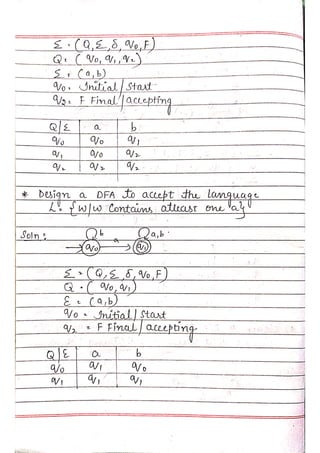 Σ = (Q, Σ, δ, q0, F)
Q = (q0, q1, q2)
Σ = (a, b)
q0 = Initial / Start
q2 = F Final / accepting
Q/Σ a b
q0 q0 q1
q1 q0 q2
q2 q2 q2
* Design a DFA to accept the language
L = {W/W Contains atleast one 'a'}
Soln: b a,b
q0 a q1
Σ = (Q, Σ, δ, q0, F)
Q = (q0, q1)
Σ = (a, b)
q0 = Initial / Start
q2 = F Final / accepting.
Q/Σ a b
q0 q1 q0
q1 q1 q1